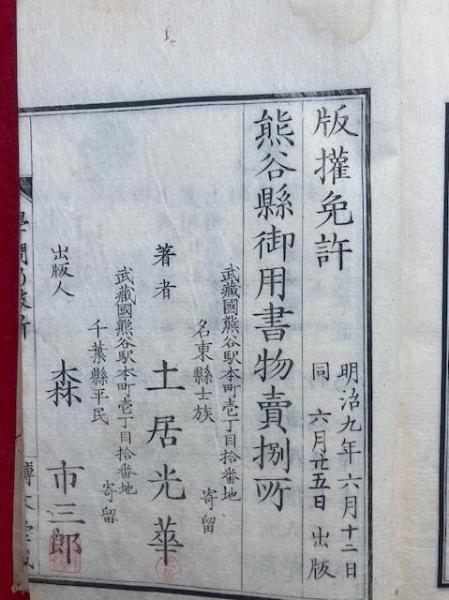 版權免許
明治九年六月十二日
同 六月廿五日 出版
熊谷縣御用書物賣捌所
武藏國熊谷駅本町壱丁目拾番地
名東縣士族 寄留
著者 土居光華
武藏國熊谷駅本町壱丁目拾番地
千葉縣平民 寄留
出版人 森 市三郎